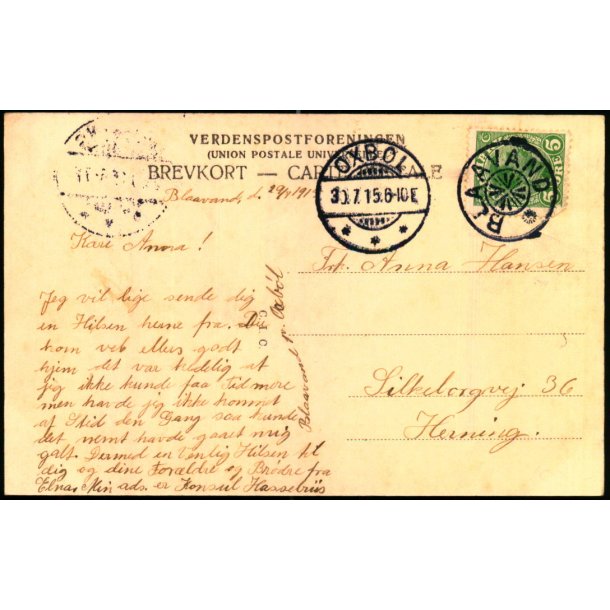 VERDENSPOSTFORENINGEN
(UNION POSTALE UNIVE
BREVKORT — CAR ALE
OXBØL
30.7.15.6-10E
BLAAVAND
5
Blaavand, d. 29/7 191
Kære Anna!
Jeg vil lige sende dig
en Hilsen herne fra. D
kom veb ellers godt
hjem det var kedelig at
jig ikke kunde faa Tid mere
men havde jig ikke kommet
af Stid den Gang saa kunde
det, nemt havde gaaet mig
galt. Dermed en Venlig Hilsen til
dig og dine Forældre og Brødre fra
Elna, Min ads. er Konsul Hassebriis
Blaavand pr. Oxbøl
C.J.C.
Frk. Anna Hansen
Silkeborgvej 36
Herning.